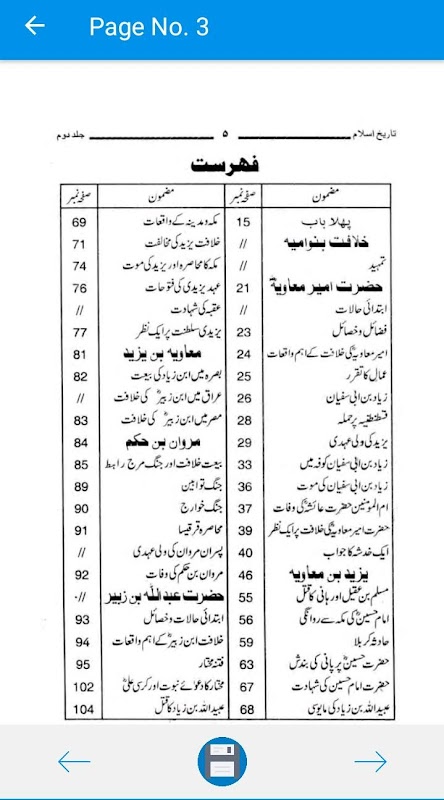 Page No. 3
تاریخ اسلام ۵ جلد دوم
فہرست
مضمون صفحہ نمبر
پہلا باب 15
خلافت بنوامیہ //
تمہید //
حضرت امیر معاویہؓ 21
ابتدائی حالات //
فضائل و خصائل 23
امیر معاویہؓ کی خلافت کے اہم واقعات 24
عمال کا تقرر 25
زیاد بن ابی سفیان 26
قسطنطنیہ پر حملہ 28
یزید کی ولی عہدی 29
زیاد بن ابی سفیان کوفہ میں 33
زیاد بن ابی سفیان کی موت 36
ام المومنین حضرت عائشہؓ کی وفات 37
حضرت امیر معاویہؓ کی خلافت پر ایک نظر 39
ایک خدشہ کا جواب 40
یزید بن معاویہ 46
مسلم بن عقیل اور ہانی کا قتل 55
امام حسینؓ کی مکہ سے روانگی 56
حادثہ کربلا 59
حضرت حسینؓ پر پانی کی بندش 63
حضرت امام حسین کی شہادت 67
عبیداللہ بن زیاد کی مایوسی 68
مضمون صفحہ نمبر
مکہ و مدینہ کے واقعات 69
خلافت یزید کی مخالفت 71
مکہ کا محاصرہ اور یزید کی موت 74
عہد یزید کی فتوحات 76
عقبہ کی شہادت //
یزیدی سلطنت پر ایک نظر 77
معاویہ بن یزید 81
بصرہ میں ابن زیاد کی بیعت 82
عراق میں ابن زبیرؓ کی خلافت //
مصر میں ابن زبیرؓ کی خلافت 83
مروان بن حکم 84
بیعت خلافت اور جنگ مرج راہط 85
جنگ توابین 89
جنگ خوارج 90
محاصرہ قرقیسا 91
پسران مروان کی ولی عہدی //
مروان بن حکم کی وفات 92
حضرت عبداللہ بن زبیر //
ابتدائی حالات و خصائل 93
خلافت ابن زبیرؓ کے اہم واقعات 94
فتنہ مختار 95
مختار کا دعوائے نبوت اور کرسی علیؓ 102
عبیداللہ بن زیاد کا قتل 104